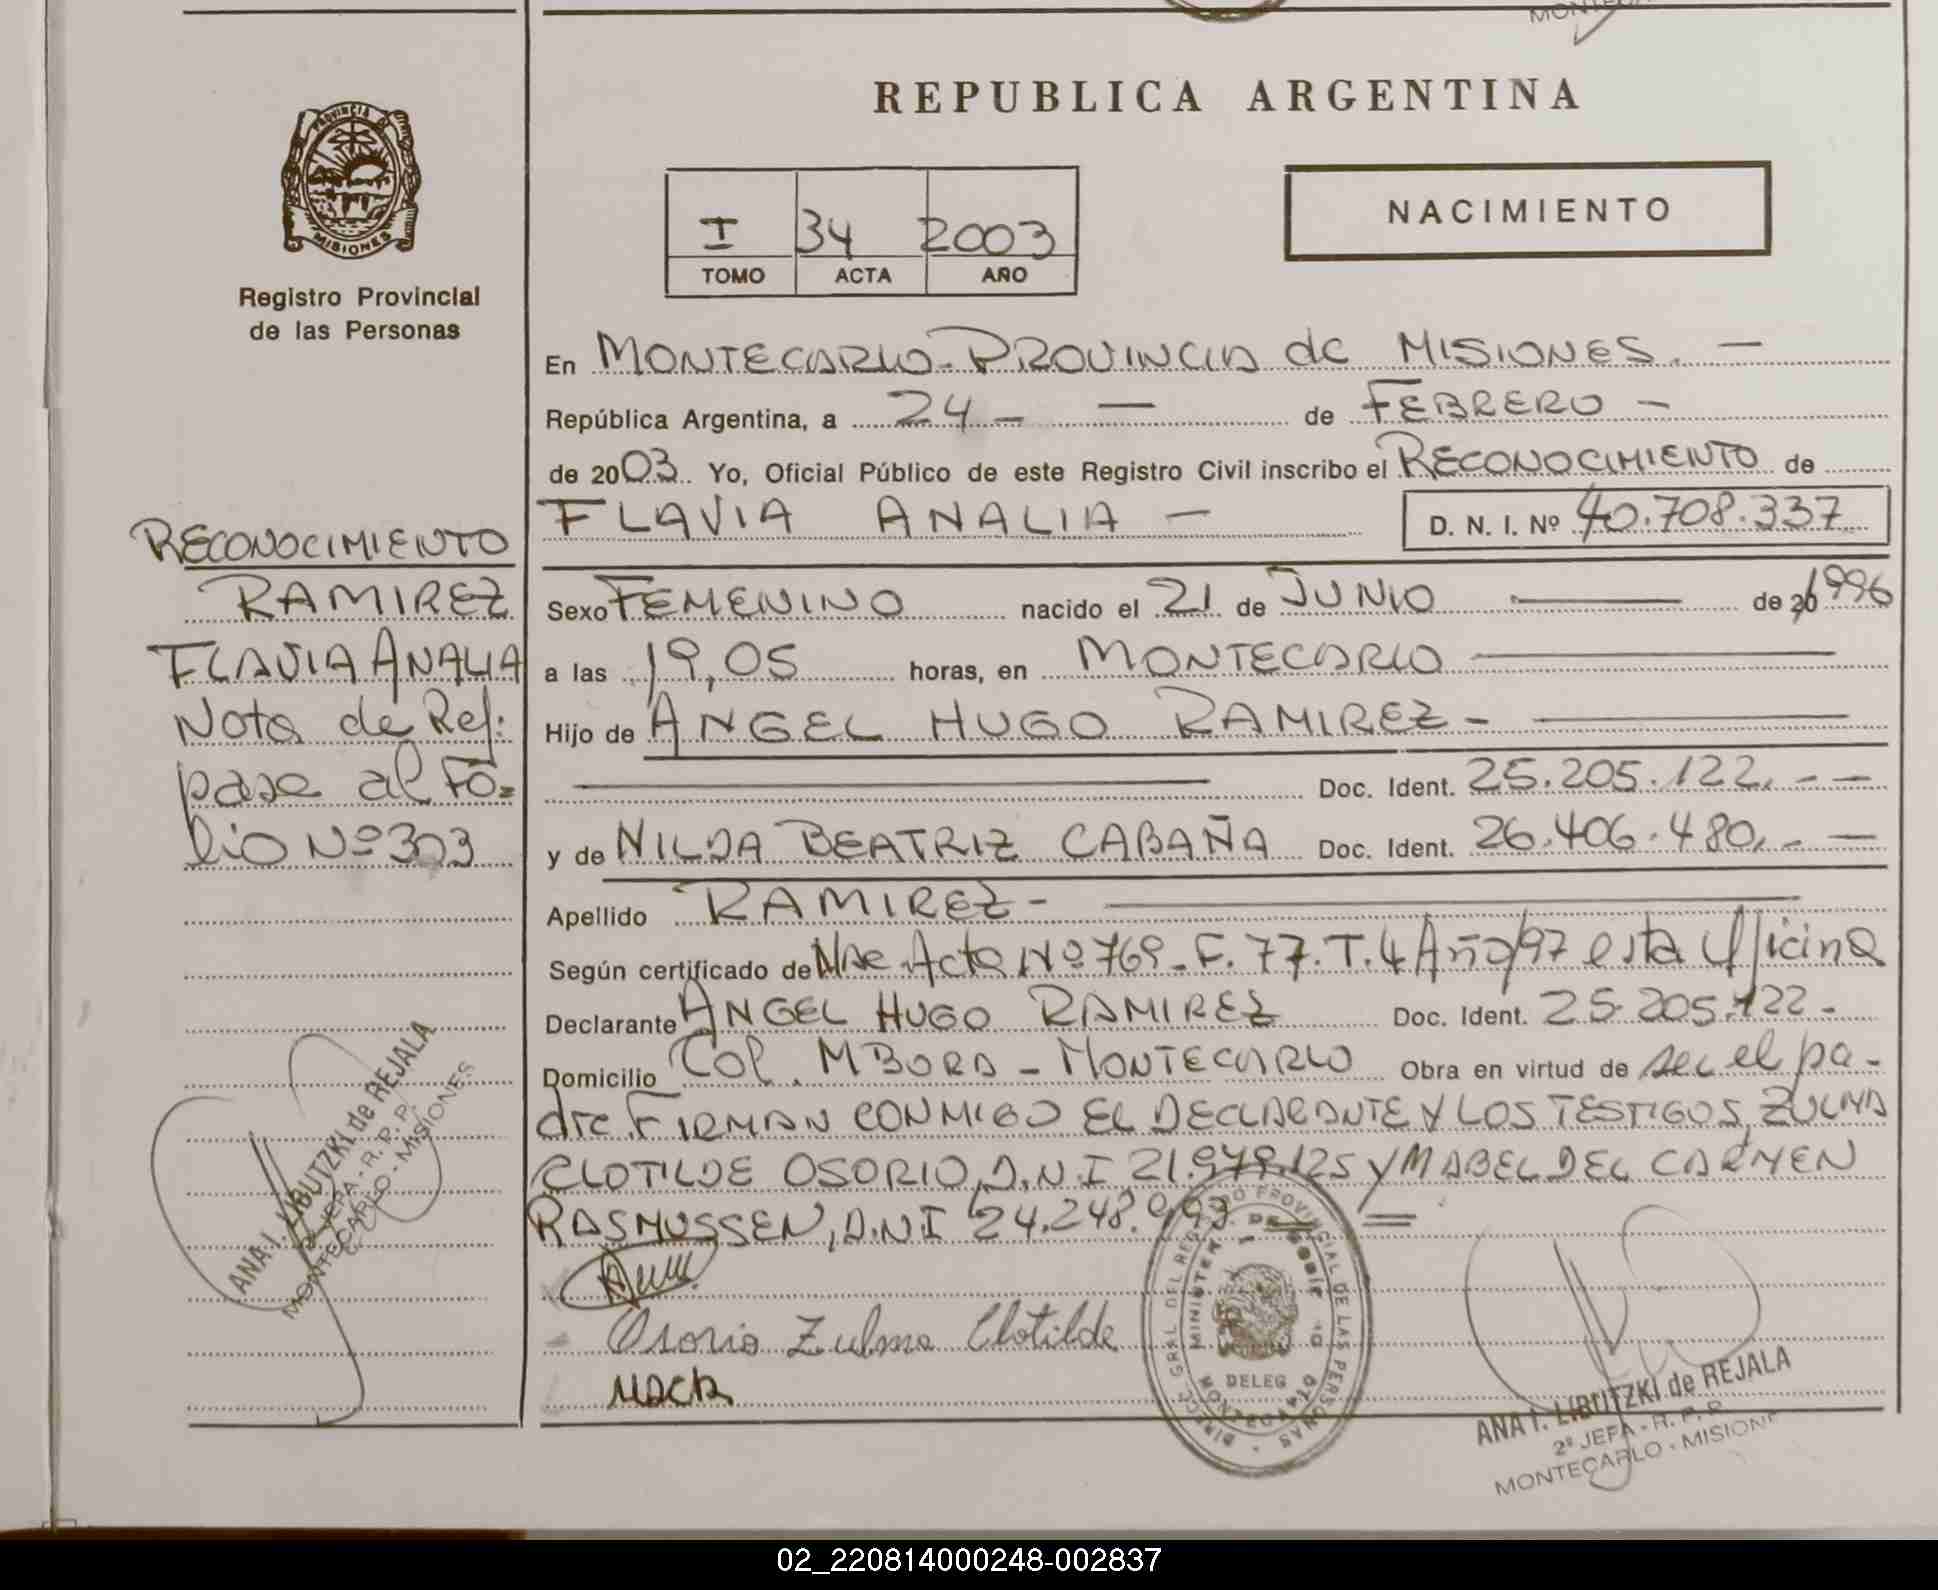 REPUBLICA ARGENTINA
PROVINCIA DE
MISIONES
Registro Provincial
de las Personas
I 34 2003
TOMO ACTA AÑO
NACIMIENTO
En MONTECARLO - PROVINCIA de MISIONES. —
República Argentina, a 24 - — de FEBRERO -
de 2003. Yo, Oficial Público de este Registro Civil inscribo el RECONOCIMIENTO de
FLAVIA ANALIA —
D. N. I. Nº 40.708.337
Sexo FEMENINO nacido el 21 de JUNIO — de 1996
a las 19,05 horas, en MONTECARLO —
Hijo de ANGEL HUGO RAMIREZ - —
— Doc. Ident. 25.205.122. - —
y de NILDA BEATRIZ CABAÑA Doc. Ident. 26.406.480. - —
Apellido RAMIREZ - —
Según certificado de Nac. Acta Nº 769 - F. 77. T. 4 Año/97 esta Oficina
Declarante ANGEL HUGO RAMIREZ Doc. Ident. 25.205.122 -
Domicilio Col. MBORA - MONTECARLO Obra en virtud de ser el pa-
dre. FIRMAN CONMIGO EL DECLARANTE Y LOS TESTIGOS, ZULMA
CLOTILDE OSORIO, D.N.I 21.979.125 Y MABEL DEL CARMEN
RASMUSSEN, D.N.I 24.248.993 =
Osorio Zulma Clotilde
RECONOCIMIENTO
RAMIREZ
FLAVIA ANALIA
Nota de Ref:
pase al Fo=
lio Nº 303
ANA I. LIBUTZKI de REJALA
2º JEFA - R. P. P.
MONTECARLO - MISIONES
DIREC. GRAL DEL REGISTRO PROVINCIAL DE LAS PERSONAS
MINISTER DE GOBIE
DELEG
ANA I. LIBUTZKI de REJALA
2º JEFA - R. P. P.
MONTECARLO - MISIONE
02_220814000248-002837